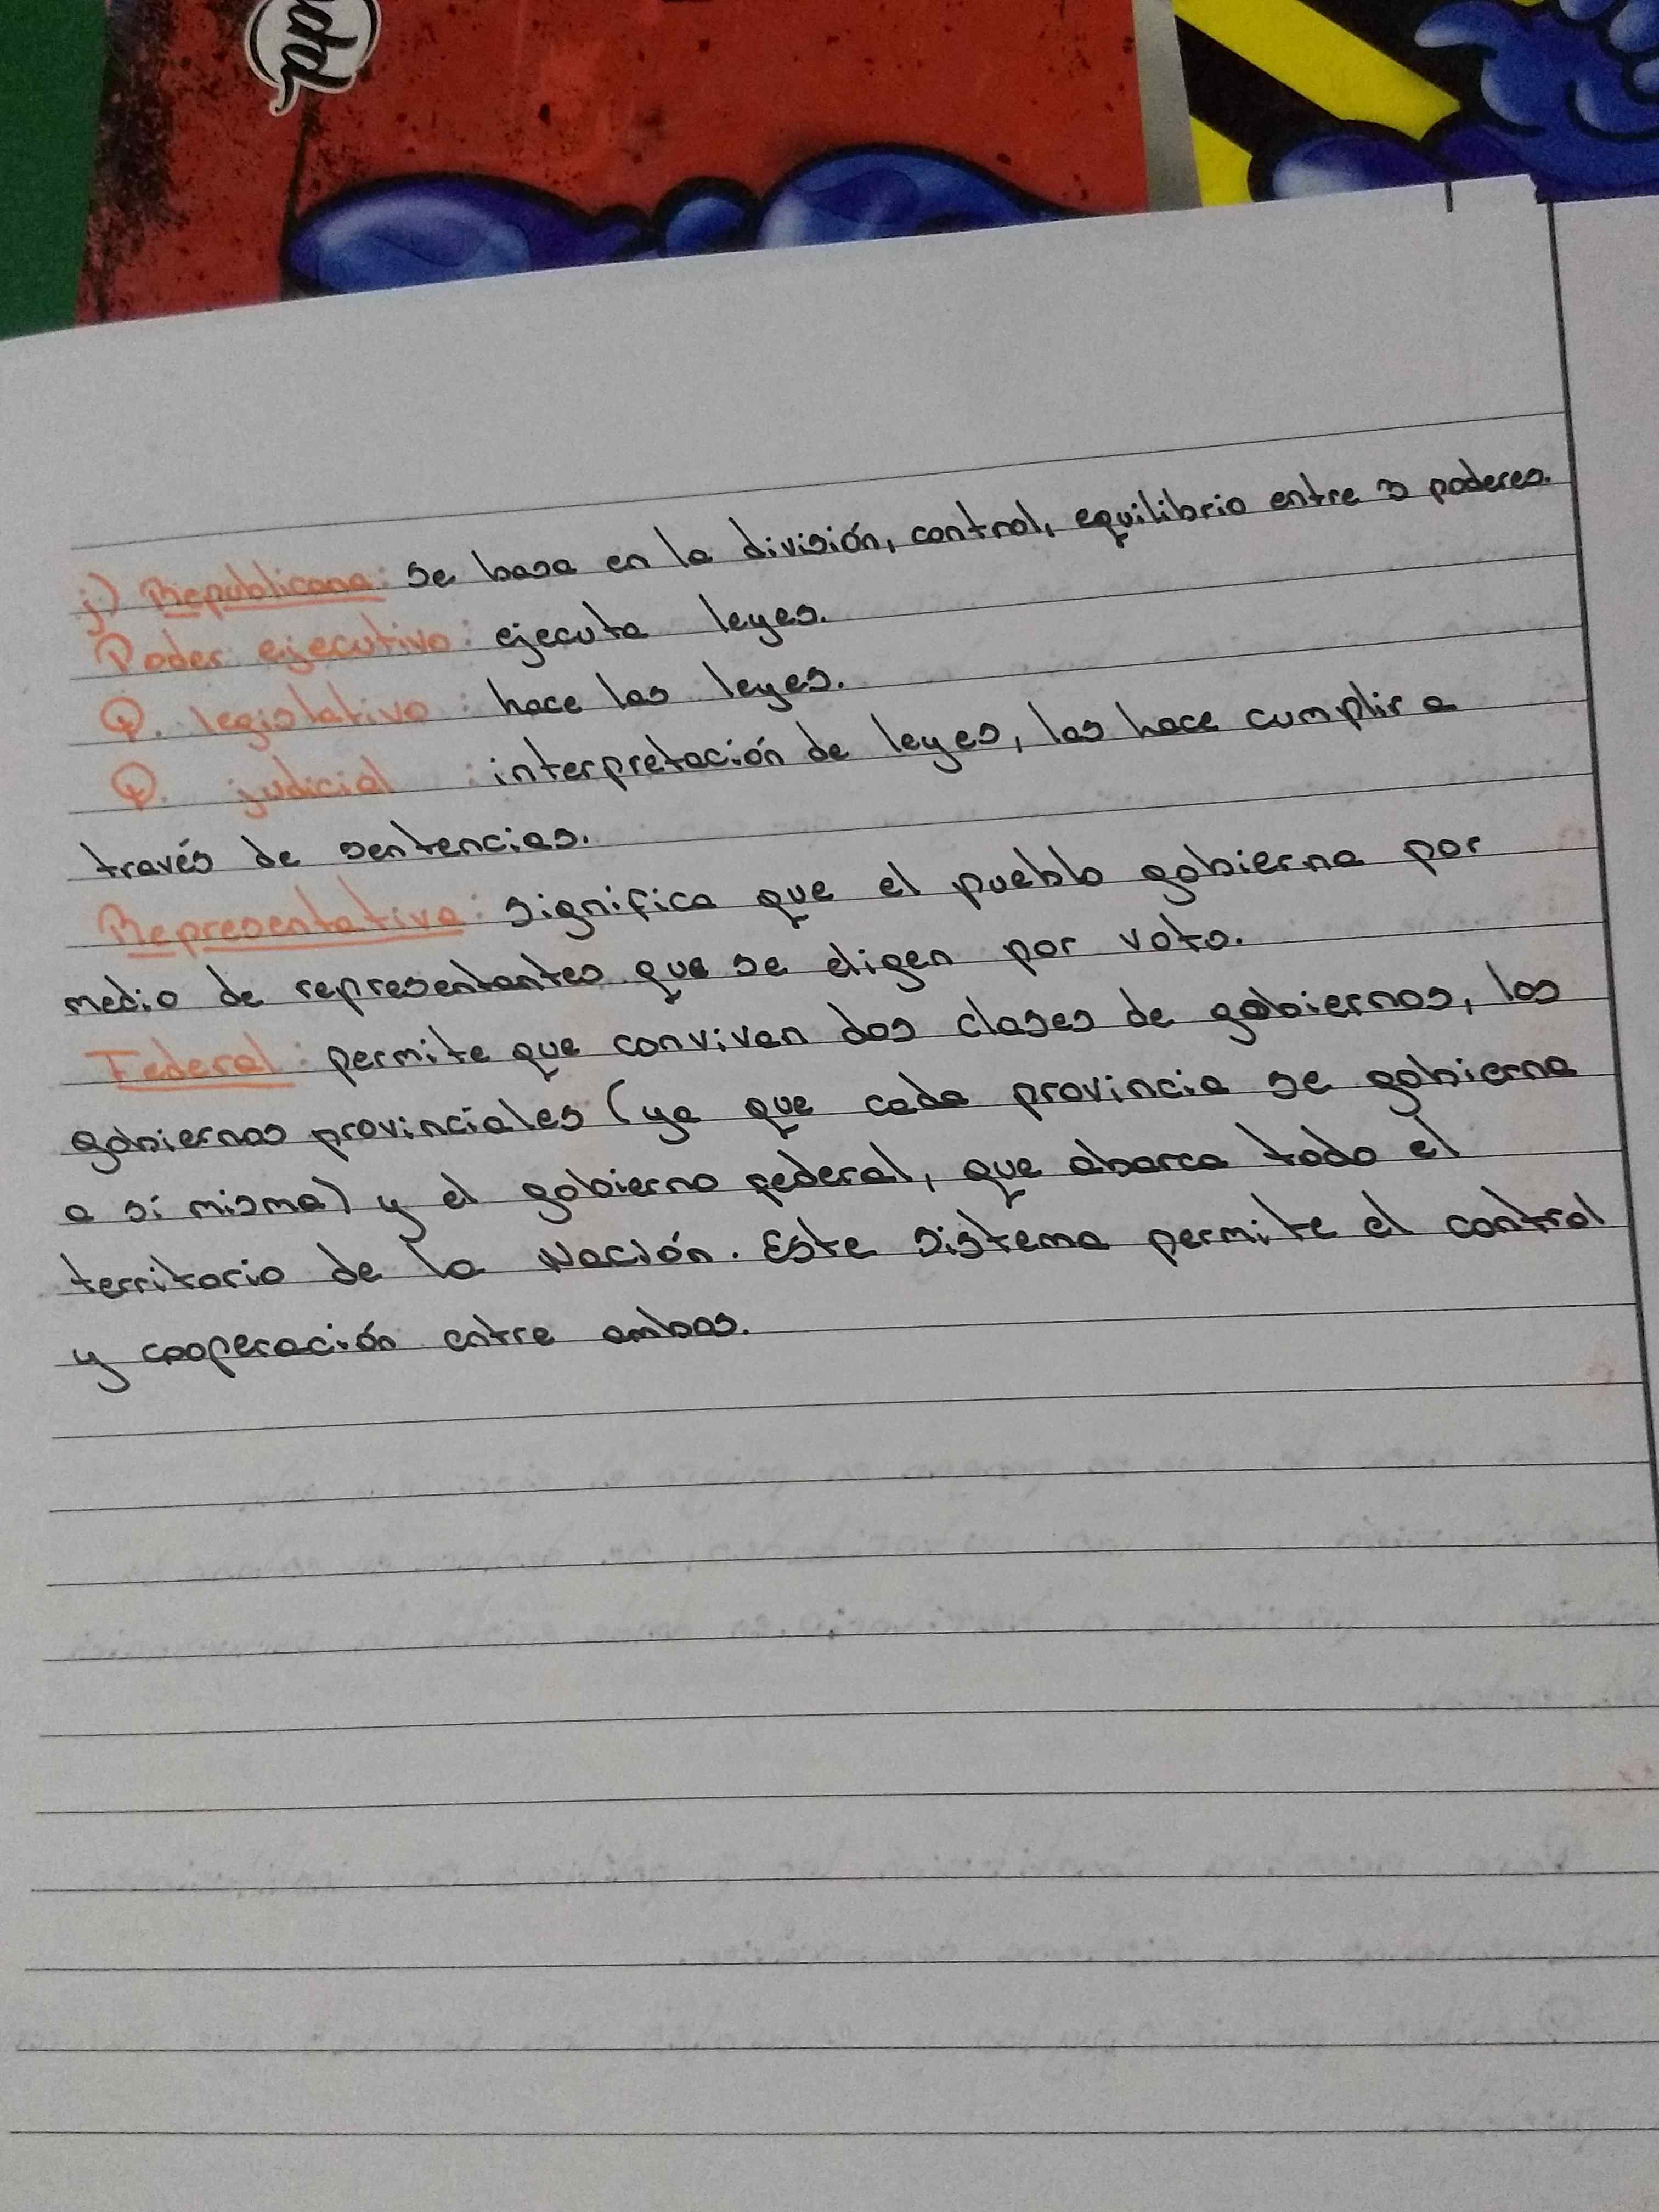 j) Republicana: Se basa en la división, control, equilibrio entre 3 poderes.
Poder ejecutivo: ejecuta leyes.
P. legislativo: hace las leyes.
P. judicial: interpretación de leyes, las hace cumplir a
través de sentencias.
Representativa: significa que el pueblo gobierna por
medio de representantes que se eligen por voto.
Federal: permite que convivan dos clases de gobiernos, los
gobiernos provinciales (ya que cada provincia se gobierna
a sí misma) y el gobierno federal, que abarca todo el
territorio de la Nación. Este sistema permite el control
y cooperación entre ambas.